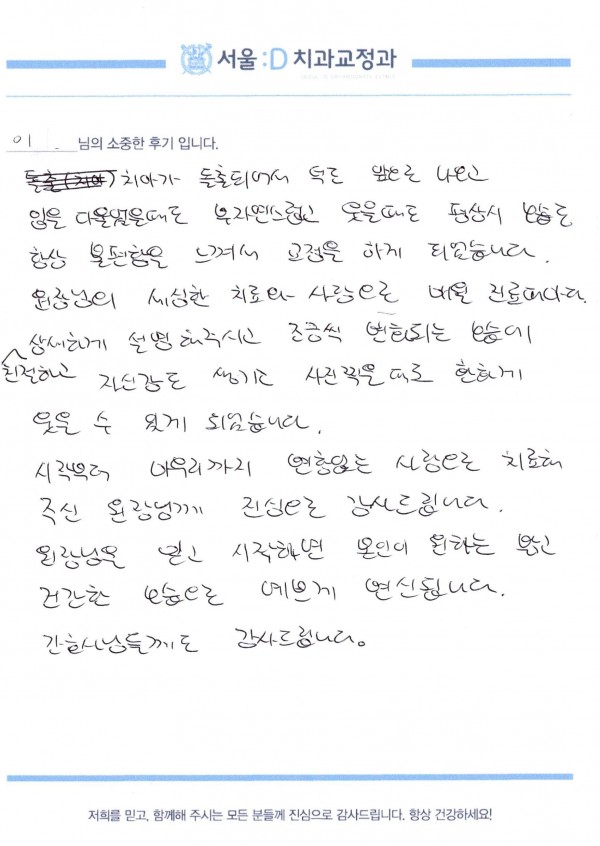 서울:D 치과교정과
이 님의 소중한 후기 입니다.
치아가 돌출되어서 턱도 앞으로 나오고
입을 다물었을때도 부자연스럽고 웃을때도 평상시 모습도
항상 불편함을 느껴서 교정을 하게 되었습니다.
원장님의 세심한 치료와 사랑으로 매월 진료때마다
친절하고 상세하게 설명해주시고 조금씩 변화되는 모습에
자신감도 생기고 사진찍을때도 환하게
웃을 수 있게 되었습니다.
시작부터 마무리까지 변함없는 사랑으로 치료해
주신 원장님께 진심으로 감사드립니다.
원장님을 믿고 시작하면 본인이 원하는 밝고
건강한 모습으로 예쁘게 변신됩니다.
간호사님들께도 감사드립니다.
저희를 믿고, 함께해 주시는 모든 분들께 진심으로 감사드립니다. 항상 건강하세요!